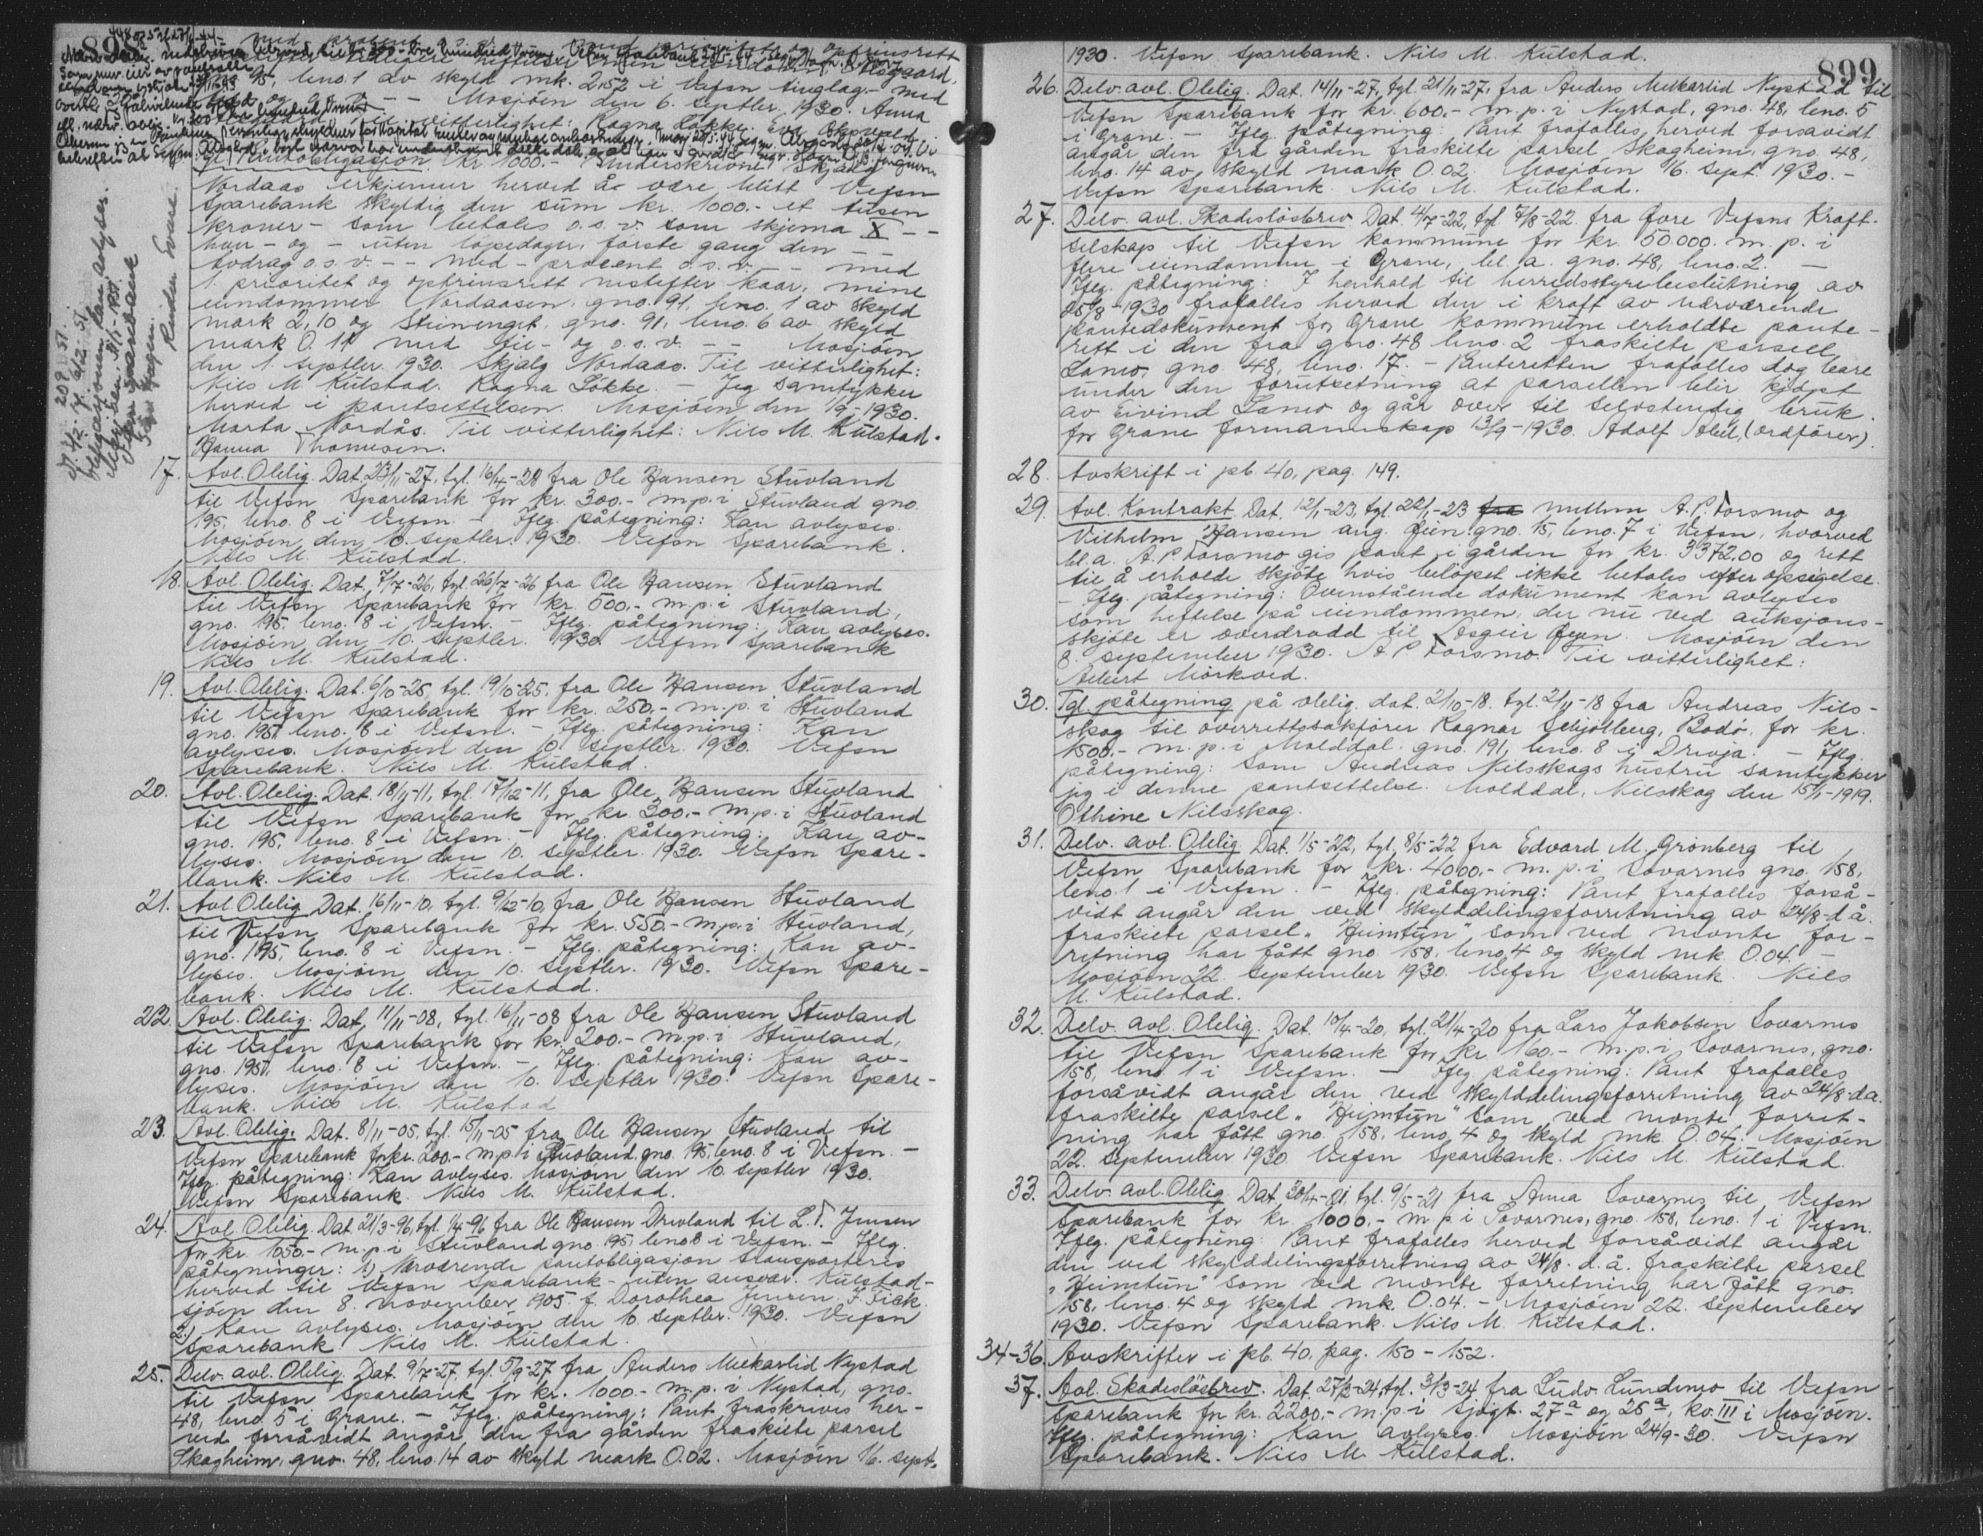 898
Mosjøen den 6. septbr. 1930. Anna
Til vitterlighet: Ragna Løkke.
Pantobligasjon. Kr. 1000.- Underskrevne Skjalg
Nordaas erkjenner herved å være blitt Vefsn
Sparebank skyldig den sum kr. 1000.- et tusen
kroner - som betales o.s.v. som skjema X - -
hou - og - uten løpedager, første gang den -
avdrag o.s.v. - - med - procent o.s.v. - - med
1 prioritet og optrinsrett nestefter kaar, mine
eiendommer Nordaasen, gno. 91, bno. 1 av skyld
mark 2,10 og Steinenget, gno. 91, bno. 6 av skyld
mark 0.11 med til- og o.s.v. - - Mosjøen
den 1. septbr. 1930. Skjalg Nordaas. Til vitterlighet:
Nils M. Kulstad. Ragna Løkke. - Jeg samtykker
herved i pantsettelsen. Mosjøen den 1/9-1930.
Marta Nordås. Til vitterlighet: Nils M. Kulstad.
Hanna Thomesen.
17. Avl. Oblig. Dat. 23/11-27, tgl. 16/4-28 fra Ole Hansen Stuvland
til Vefsn Sparebank for kr. 300.- m.p. i Stuvland gno.
195, bno. 8 i Vefsn. - Iflg. påtegning: Kan avlyses.
Mosjøen den 10. septbr. 1930. Vefsn Sparebank.
Nils M. Kulstad.
18. Avl. Oblig. Dat. 7/7-26, tgl. 26/7-26 fra Ole Hansen Stuvland
til Vefsn Sparebank for kr. 500.- m.p. i Stuvland,
gno. 195, bno. 8 i Vefsn. - Iflg. påtegning: Kan avlyses.
Mosjøen den 10. septbr. 1930. Vefsn Sparebank
Nils M. Kulstad.
19. Avl. Oblig. Dat. 6/10-25, tgl. 19/10-25, fra Ole Hansen Stuvland
til Vefsn Sparebank for kr. 250.- m.p. i Stuvland
gno. 195, bno. 8 i Vefsn. - Iflg. påtegning: Kan
avlyses. Mosjøen den 10. septbr. 1930. Vefsn
Sparebank. Nils M. Kulstad.
20. Avl. Oblig. Dat. 18/11-11, tgl. 17/12-11, fra Ole Hansen Stuvland
til Vefsn Sparebank for kr. 300.- m.p. i Stuvland
gno. 195, bno. 8 i Vefsn. - Iflg. påtegning: Kan av-
lyses. Mosjøen den 10. septbr. 1930. Vefsn Spare-
bank. Nils M. Kulstad.
21. Avl. Oblig. Dat. 16/11-10, tgl. 9/12-10, fra Ole Hansen Stuvland
til Vefsn Sparebank for kr. 550.- m.p. i Stuvland,
gno. 195, bno. 8 i Vefsn. - Iflg. påtegning: Kan av-
lyses. Mosjøen den 10. septbr. 1930. Vefsn Spare-
bank. Nils M. Kulstad.
22. Avl. Oblig. Dat. 11/11-08, tgl. 16/11-08 fra Ole Hansen Stuvland
til Vefsn Sparebank for kr. 200.- m.p. i Stuvland,
gno. 195, bno. 8 i Vefsn. - Iflg. påtegning: Kan av-
lyses. Mosjøen den 10. septbr 1930. Vefsn Spare-
bank. Nils M. Kulstad
23. Avl. Oblig. Dat. 8/11-05, tgl. 15/11-05 fra Ole Hansen Stuvland til
Vefsn Sparebank for kr. 200.- m.p. i Stuvland, gno. 195, bno. 8 i Vefsn. -
Iflg. påtegning: Kan avlyses. Mosjøen den 10. septbr 1930.
Vefsn Sparebank. Nils M. Kulstad.
24. Avl. Oblig. Dat. 21/3-96, tgl. 1/4-96 fra Ole Hansen Drevland til L. T. Jensen
for kr. 1050.- m.p. i Stuvland gno. 195, bno 8 i Vefsn. - Iflg.
påtegninger: 1) Nærværende pantobligasjon transporteres
herved til Vefsn Sparebank - uten ansvar. Kulstad-
sjøen den 8. november 1905. f. Dorothea Jensen. J. Fick.
2) Kan avlyses. Mosjøen den 10. septbr. 1930. Vefsn
Sparebank Nils M. Kulstad.
25. Delv. avl. Oblig. Dat. 9/7-27, tgl. 5/9-27 fra Anders Mekarlid Nystad
til Vefsn Sparebank for kr. 1000.- m.p. i Nystad, gno.
48, bno. 5 i Grane. - Iflg. påtegning: Pant fraskrives her-
ved forsåvidt angår den fra gården fraskilte parsel
Skogheim, gno. 48, bno. 14 av skyld mark 0.02. Mosjøen 16. sept.
899
1930. Vefsn Sparebank. Nils M. Kulstad.
26. Delv. avl. Oblig. Dat. 14/11-27, tgl. 21/11-27, fra Anders Mekarlid Nystad til
Vefsn Sparebank for kr. 600.- m.p. i Nystad, gno. 48, bno. 5
i Grane. - Iflg. påtegning: Pant frafalles herved forsåvidt
angår den fra gården fraskilte parsel Skogheim, gno. 48,
bno. 14 av skyld mark 0.02. Mosjøen 16. sept. 1930. -
Vefsn Sparebank. Nils M. Kulstad.
27. Delv. avl. Skadesløsbrev. Dat. 4/7-22, tgl. 7/8-22. fra Øvre Vefsns Kraft-
selskap til Vefsn kommune for kr. 50.000.- m.p. i
flere eiendomme i Grane, bl. a. gno. 48, bno. 2. -
Iflg. påtegning: I henhold til herredsstyrebeslutning av
25/8-1930 frafalles herved den i kraft av nærværende
pantedokument for Grane kommune erholdte pante-
rett i den fra gno. 48 bno. 2 fraskilte parsell
Lamo, gno. 48, bno. 17. - Panteretten frafalles dog bare
under den forutsetning at parsellen blir kjøpt
av Eivind Lamo og går over til selvstendig bruk.
for Grane formannskap 13/9-1930. Adolf Abel, (ordfører).
28. Avskrift i pb. 40, pag. 149.
29. Avl. Kontrakt Dat. 12/1-23, tgl. 22/1-23 fra mellem A. P. Forsmo og
Vilhelm Hansen ang. Øien gno. 15, bno. 7 i Vefsn, hvorved
bl.a. A. P. Forsmo gis pant i gården for kr. 3372,00 og rett
til å erholde skjøte hvis beløpet ikke betales efter opsigelse.
- Iflg. påtegning: Ovenstående dokument kan avlyses
som heftelse på eiendommen, der nu ved auksjons-
skjøte er overdradd til Asgeir Øyen. Mosjøen den
8. september 1930. A. P. Forsmo. Til vitterlighet:
Albert Mørkved.
30. Tgl. påtegning på oblig. dat. 2/10-18. tgl. 2/11-18 fra Andreas Nils-
skog til overrettssakfører Ragnar Schjølberg, Bodø, for kr.
1500.- m.p. i Molddal. gno. 191, bno. 8 i Drevja. - Iflg.
påtegning: Som Andreas Nilsskogs hustru samtykker
jeg i denne pantsettelse. Molddal, Nilsskog den 15/11-1919.
Othine Nilsskog.
31. Delv. avl. Oblig. Dat. 1/5-22, tgl. 8/5-22 fra Edvard M. Grønberg til
Vefsn Sparebank for kr. 4000.- m.p. i Sovarnes gno. 158,
bno. 1 i Vefsn. - Iflg. påtegning: Pant frafalles forså-
vidt angår den ved skylddelingsforretning av 24/8-d.å.
fraskilte parsel "Heimtun" som ved nevnte for-
retning har fått gno. 158, bno. 4 og skyld mk. 0.04. -
Mosjøen 22. september 1930. Vefsn Sparebank. Nils
M. Kulstad.
32. Delv. avl. Oblig. Dat. 10/4-20, tgl. 21/4-20 fra Lars Jakobsen Sovarnes
til Vefsn Sparebank for kr. 160.- m.p. i Sovarnes, gno.
158, bno. 1 i Vefsn. - Iflg påtegning: Pant frafalles
forsåvidt angår den ved skylddelingsforretning av 24/8-d.a.
fraskilte parsel "Heimtun" som ved nevnte forret-
ning har fått gno. 158, bno. 4 og skyld mk. 0.04. Mosjøen
22. september 1930 Vefsn Sparebank. Nils M. Kulstad.
33. Delv. avl. Oblig. Dat. 30/4-21, tgl. 9/5-21 fra Anna Sovarnes til Vefsn
Sparebank for kr. 1000.- m.p. i Sovarnes, gno. 158, bno. 1 i Vefsn.
Iflg. påtegning: Pant frafalles herved forsåvidt angår
den ved skylddelingsforretning av 24/8. d.å. fraskilte parsel
"Heimtun" som ved nevnte forretning har fått gno.
158, bno. 4 og skyld mk. 0.04. - Mosjøen 22. september
1930. Vefsn Sparebank. Nils M. Kulstad.
34-36. Avskrifter i pb. 40, pag. 150-152.
37. Avl. Skadesløsbrev. Dat. 27/2-24, tgl. 3/3-24 fra Ludv. Lundmo til Vefsn
Sparebank for kr. 2200.- m.p. i Sjøgt. 27a og 25a, kv. III i Mosjøen.
Iflg. påtegning: Kan avlyses. Mosjøen 24/9-30. Vefsn
Sparebank. Nils M. Kulstad.